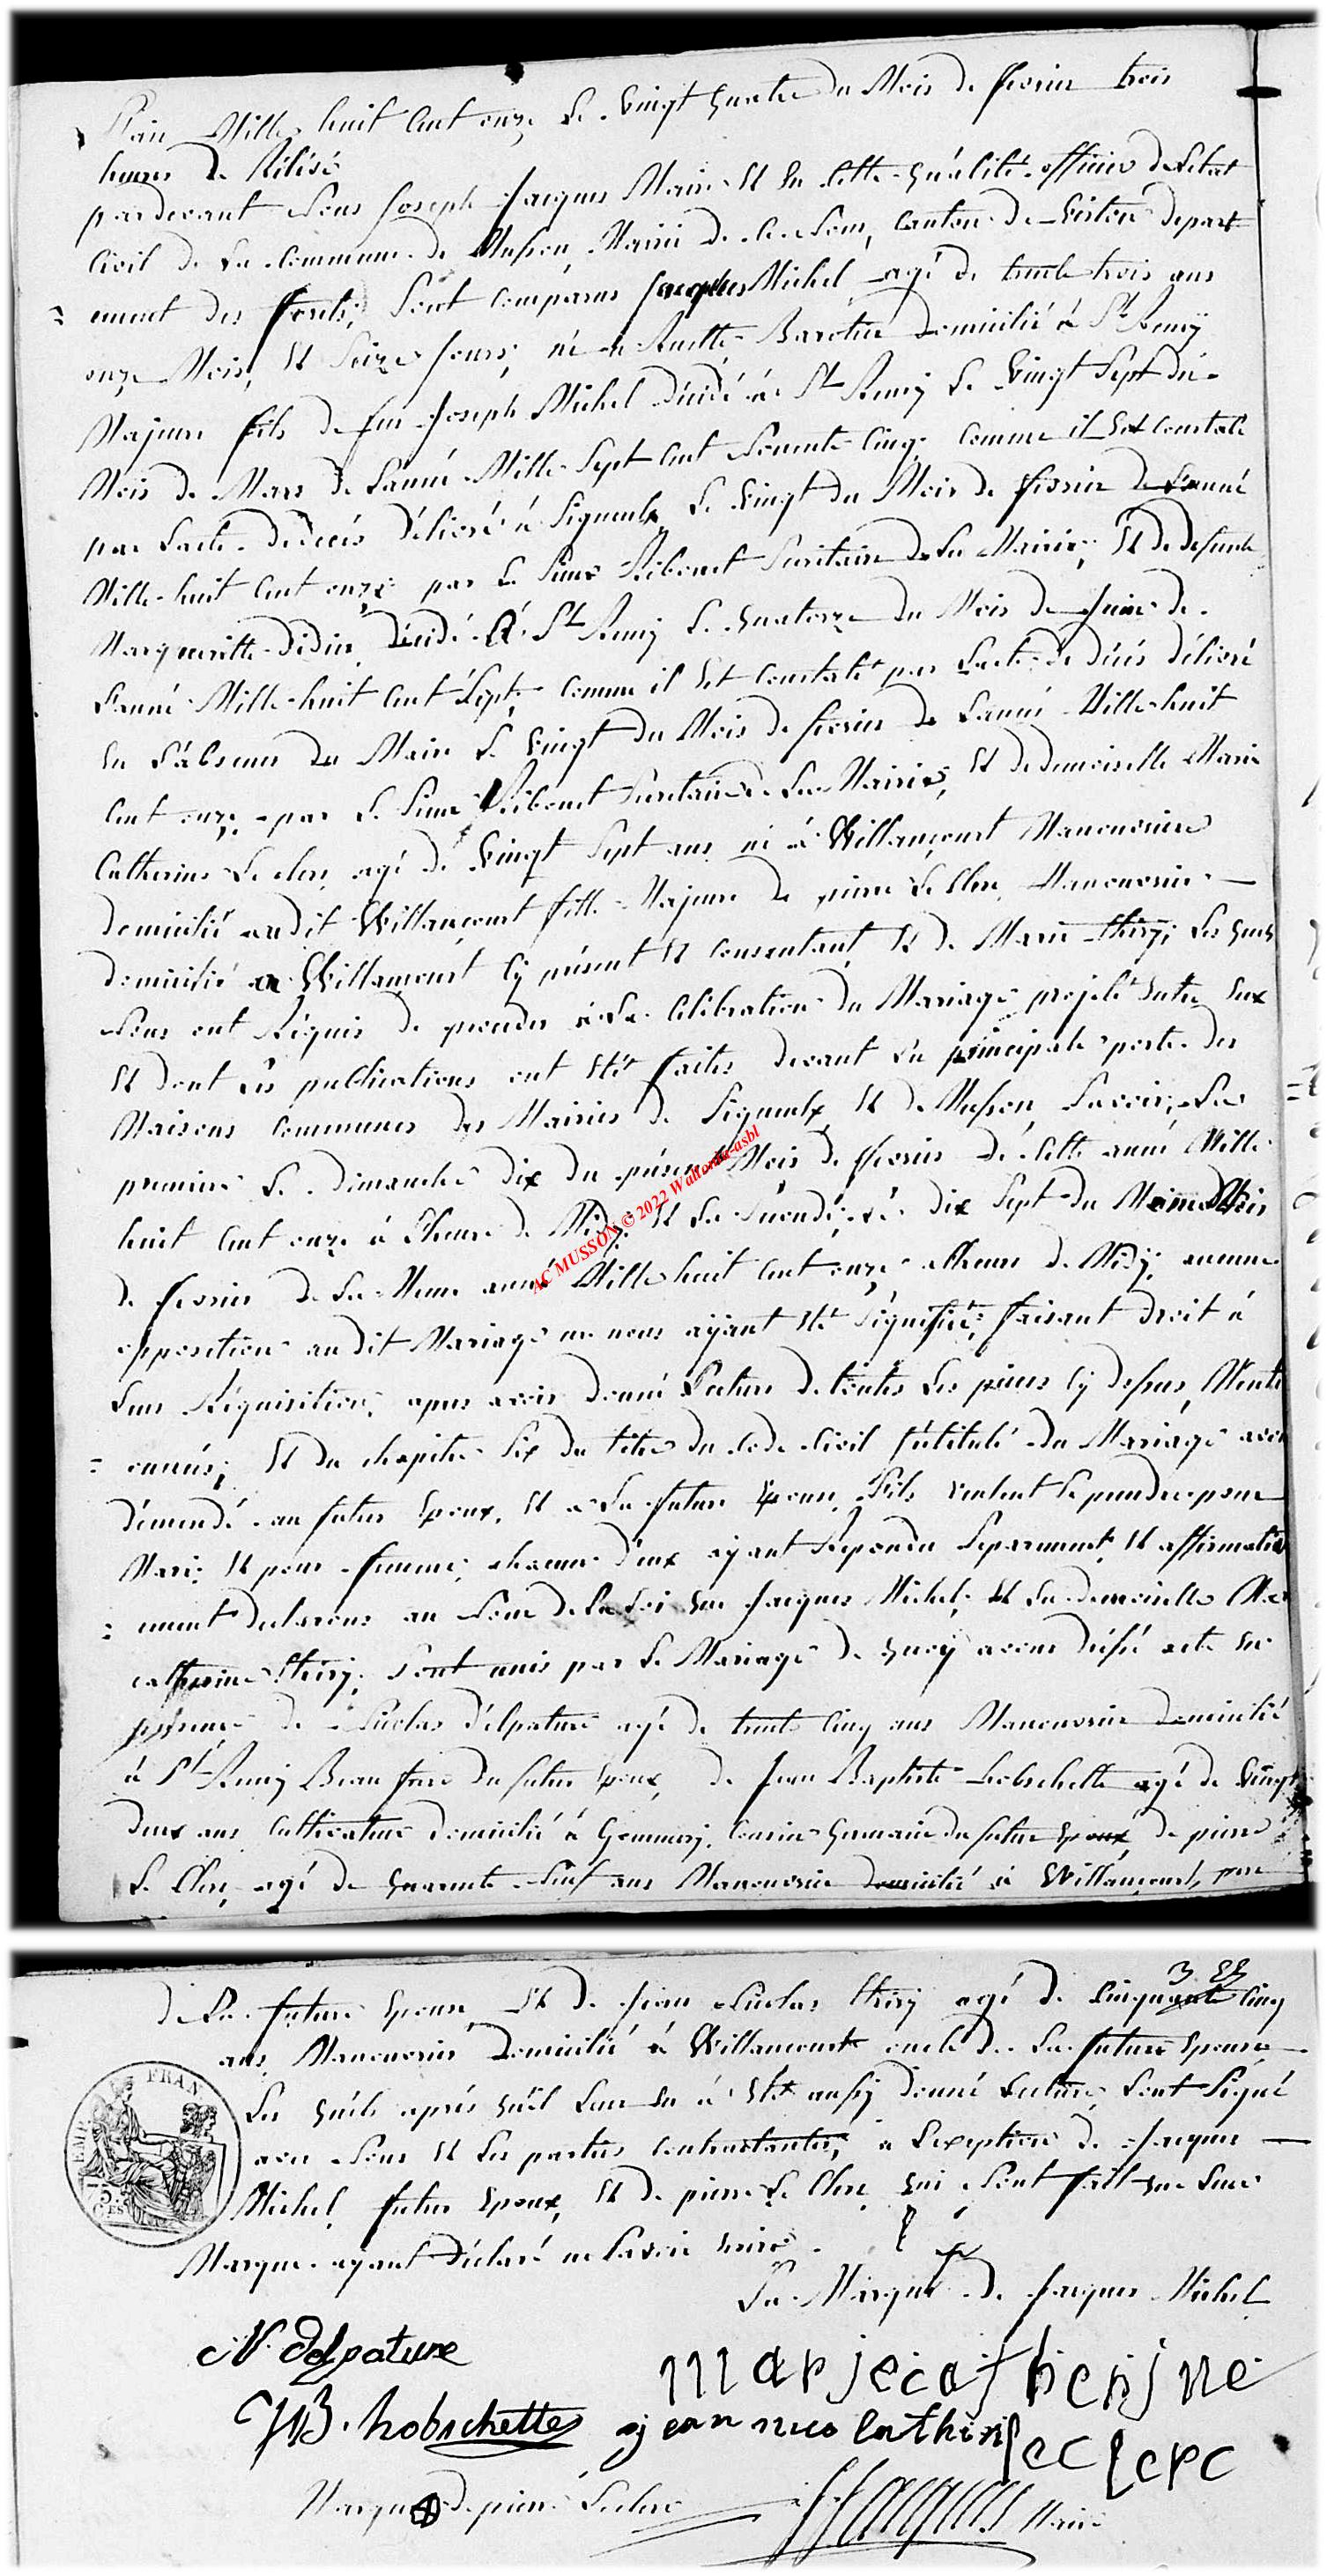 L'ain Mille huit Cent onze Le vingt quatre du Mois de fevrier trois
heures de Rélévé
pardevant Nous Joseph Jacques Maire Et En Cette quálité officier de L'etat
Civil de La Commune de Musson, Mairie de Ce Nom, Canton de Virton depart
= ement des forêts, Sont Comparus Jacques Michel agé de trente trois ans
onze Mois, Et Seize Jours, né a Ruette Domicilié à St Remÿ
Majeure fils de feu Joseph Michel Décédé à St Remy Le vingt Sept du
Mois de Mars de L'anné Mille Sept Cent Nonente Cinq comme il Est Constaté
par L'acte de décés Délivré à Signeulx Le vingt du Mois de fevrier de L'anné
Mille huit Cent onze par Le Sieur Ribonet Secrétaire de La Mairie, Et de defunte
Margueritte Didier Décédé à St Remy Le quatorze du Mois de Juin de
L'anné Mille huit Cent Sept, comme il Est Constaté par L'acte de décés délivré
En L'absence du Maire Le vingt du Mois de fevrier de L'anné Mille huit
Cent onze par Le Sieur Ribonet Secrétaire de La Mairie, Et de demoiselle Marie
Catherine Le clerc agé de vingt Sept ans né à Willancourt Manouvriere
domicilié audit Willancourt fille Majeure de pierre Le Clerc Manouvrier
domicilié a Willancourt Cy présent Et Consentant Et de Marie thiry, Les quels
Nous ont Réquis de proceder à La Célébration du Mariage projeté Entre Eux
Et dont Les publications ont Eté faites devant La principale porte des
Maisons Communes des Mairies de Signeulx Et de Musson, Savoir, La
premiere Le dimanche dix du présent Mois de fevrier de Cette anné Mille
huit Cent onze à l'heure de Midy, Et La Séconde Le dix Sept du Même Mois
de fevrier de La Meme anné Mille huit Cent onze a l'heure de Midÿ, aucune
opposition audit Mariage ne nous aÿant Eté Signifiée, faisant droit à
Leur Réquisition, apres avoir donné Lecture de toutes Les pieces Cy dessus, Menti
= onnés, Et du chapitre Six du titre du Code Civil Intitulé du Mariage avon
démendé au futur Epoux, Et a La future Epouse S'ils veulent Se prendre pour
Mari Et pour femme, chacun d'eux aÿant Repondu Separement Et affirmative
= ement declarons au Nom de La Loi que Jacques Michel, Et La demoiselle Mar
catherine thiry, Sont unis par Le Mariage de quoÿ avons dressé acte En
présence de Nicolas délpature agé de trente Cinq ans Manouvrier domicilié
à St Remy Beau frere du futur Epoux, de Jean Baptiste hobschette agé de vingt
Deux ans Cultivateur Domicilié à Gommery, Cousin Germain du futur Epoux de pierre
Le Clerc, agé de quarante Neuf ans Manouvrier domicilié à Willancourt, pere
3 22
de La future Epouse Et de Jean Nicolas thiry agé de Cinquante Cinq
ans Manouvrier Domicilié à Willancourt oncle de La future Epouse
Les quéls aprés qu'il Leur En à Eté aussy donné Lecture, Sont Signé
avec Nous Et Les parties Contractantes, a L'exception de Jacques
Michel futur Epoux, Et de pierre Le Clerc qui Nont fait que Leur
Marque ayant Déclaré ne Savoir Ecrire
La Marque de Jacques Michel
N. delpature
mariecatherine
JB. hobschette jean nico lathiri
leclerc
Marque de pierre Leclerc
JJacques Maire
EMP. FRAN
75 CES
AC MUSSON © 2022 Wallonia-asbl